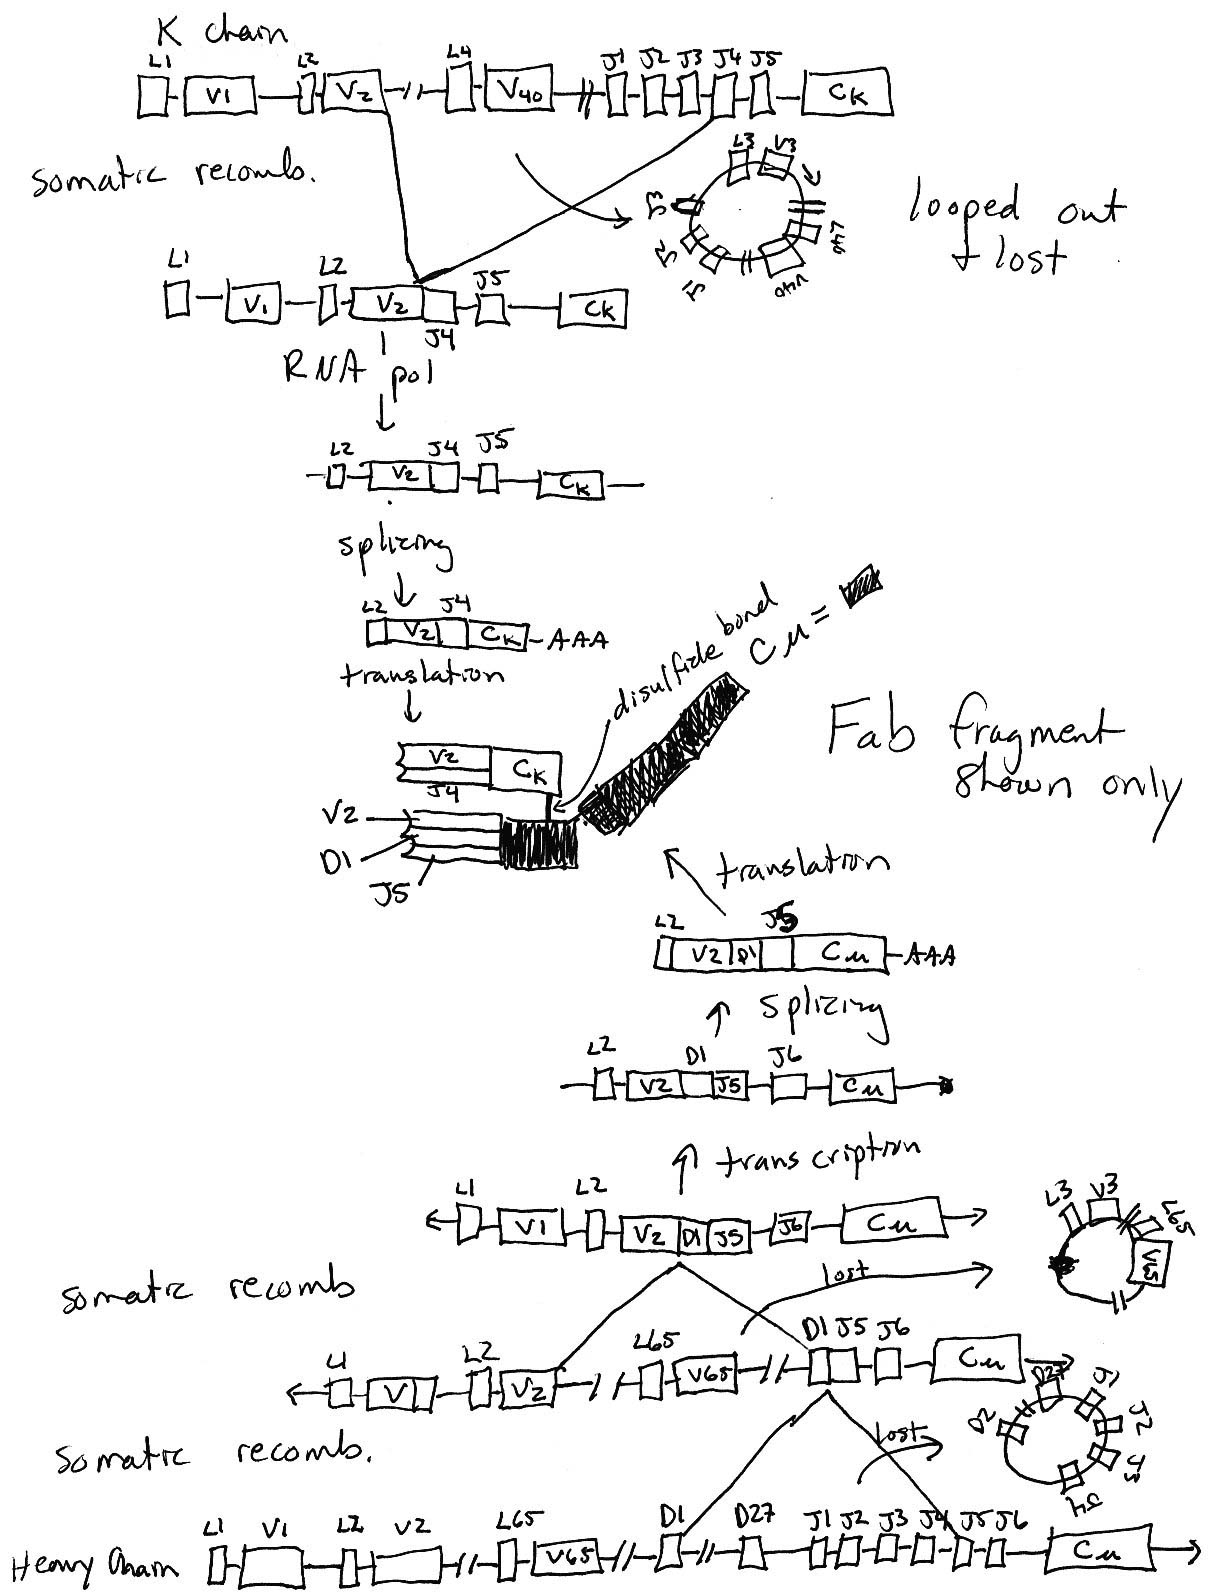 K chain
L1 L2 L4 J1 J2 J3 J4 J5
V1 V2 V40 CK
somatic recomb.
L3 V3
J3 L40
J2 J1 V40
looped out
+ lost
L1 L2 J5
V1 V2 CK
J4
RNA pol
L2 J4 J5
V2 CK
splicing
L2 J4
V2 CK -AAA
translation
disulfide bond
Cμ =
V2 CK
J4
V2
D1
J5
Fab fragment
shown only
translation
L2 J5
V2 D1 Cμ -AAA
splicing
L2 D1 J6
V2 J5 Cμ
transcription
L1 L2
V1 V2 D1 J5 J6 Cμ
L3 V3 L65
V65
somatic recomb
lost
L1 L2 L65 D1 J5 J6
V V2 V65 Cμ
D27 J1
D2 J2
J3
J4
somatic recomb.
lost
L1 V1 L2 V2 L65 D1 D27 J1 J2 J3 J4 J5 J6
Heavy Chain V65 Cμ